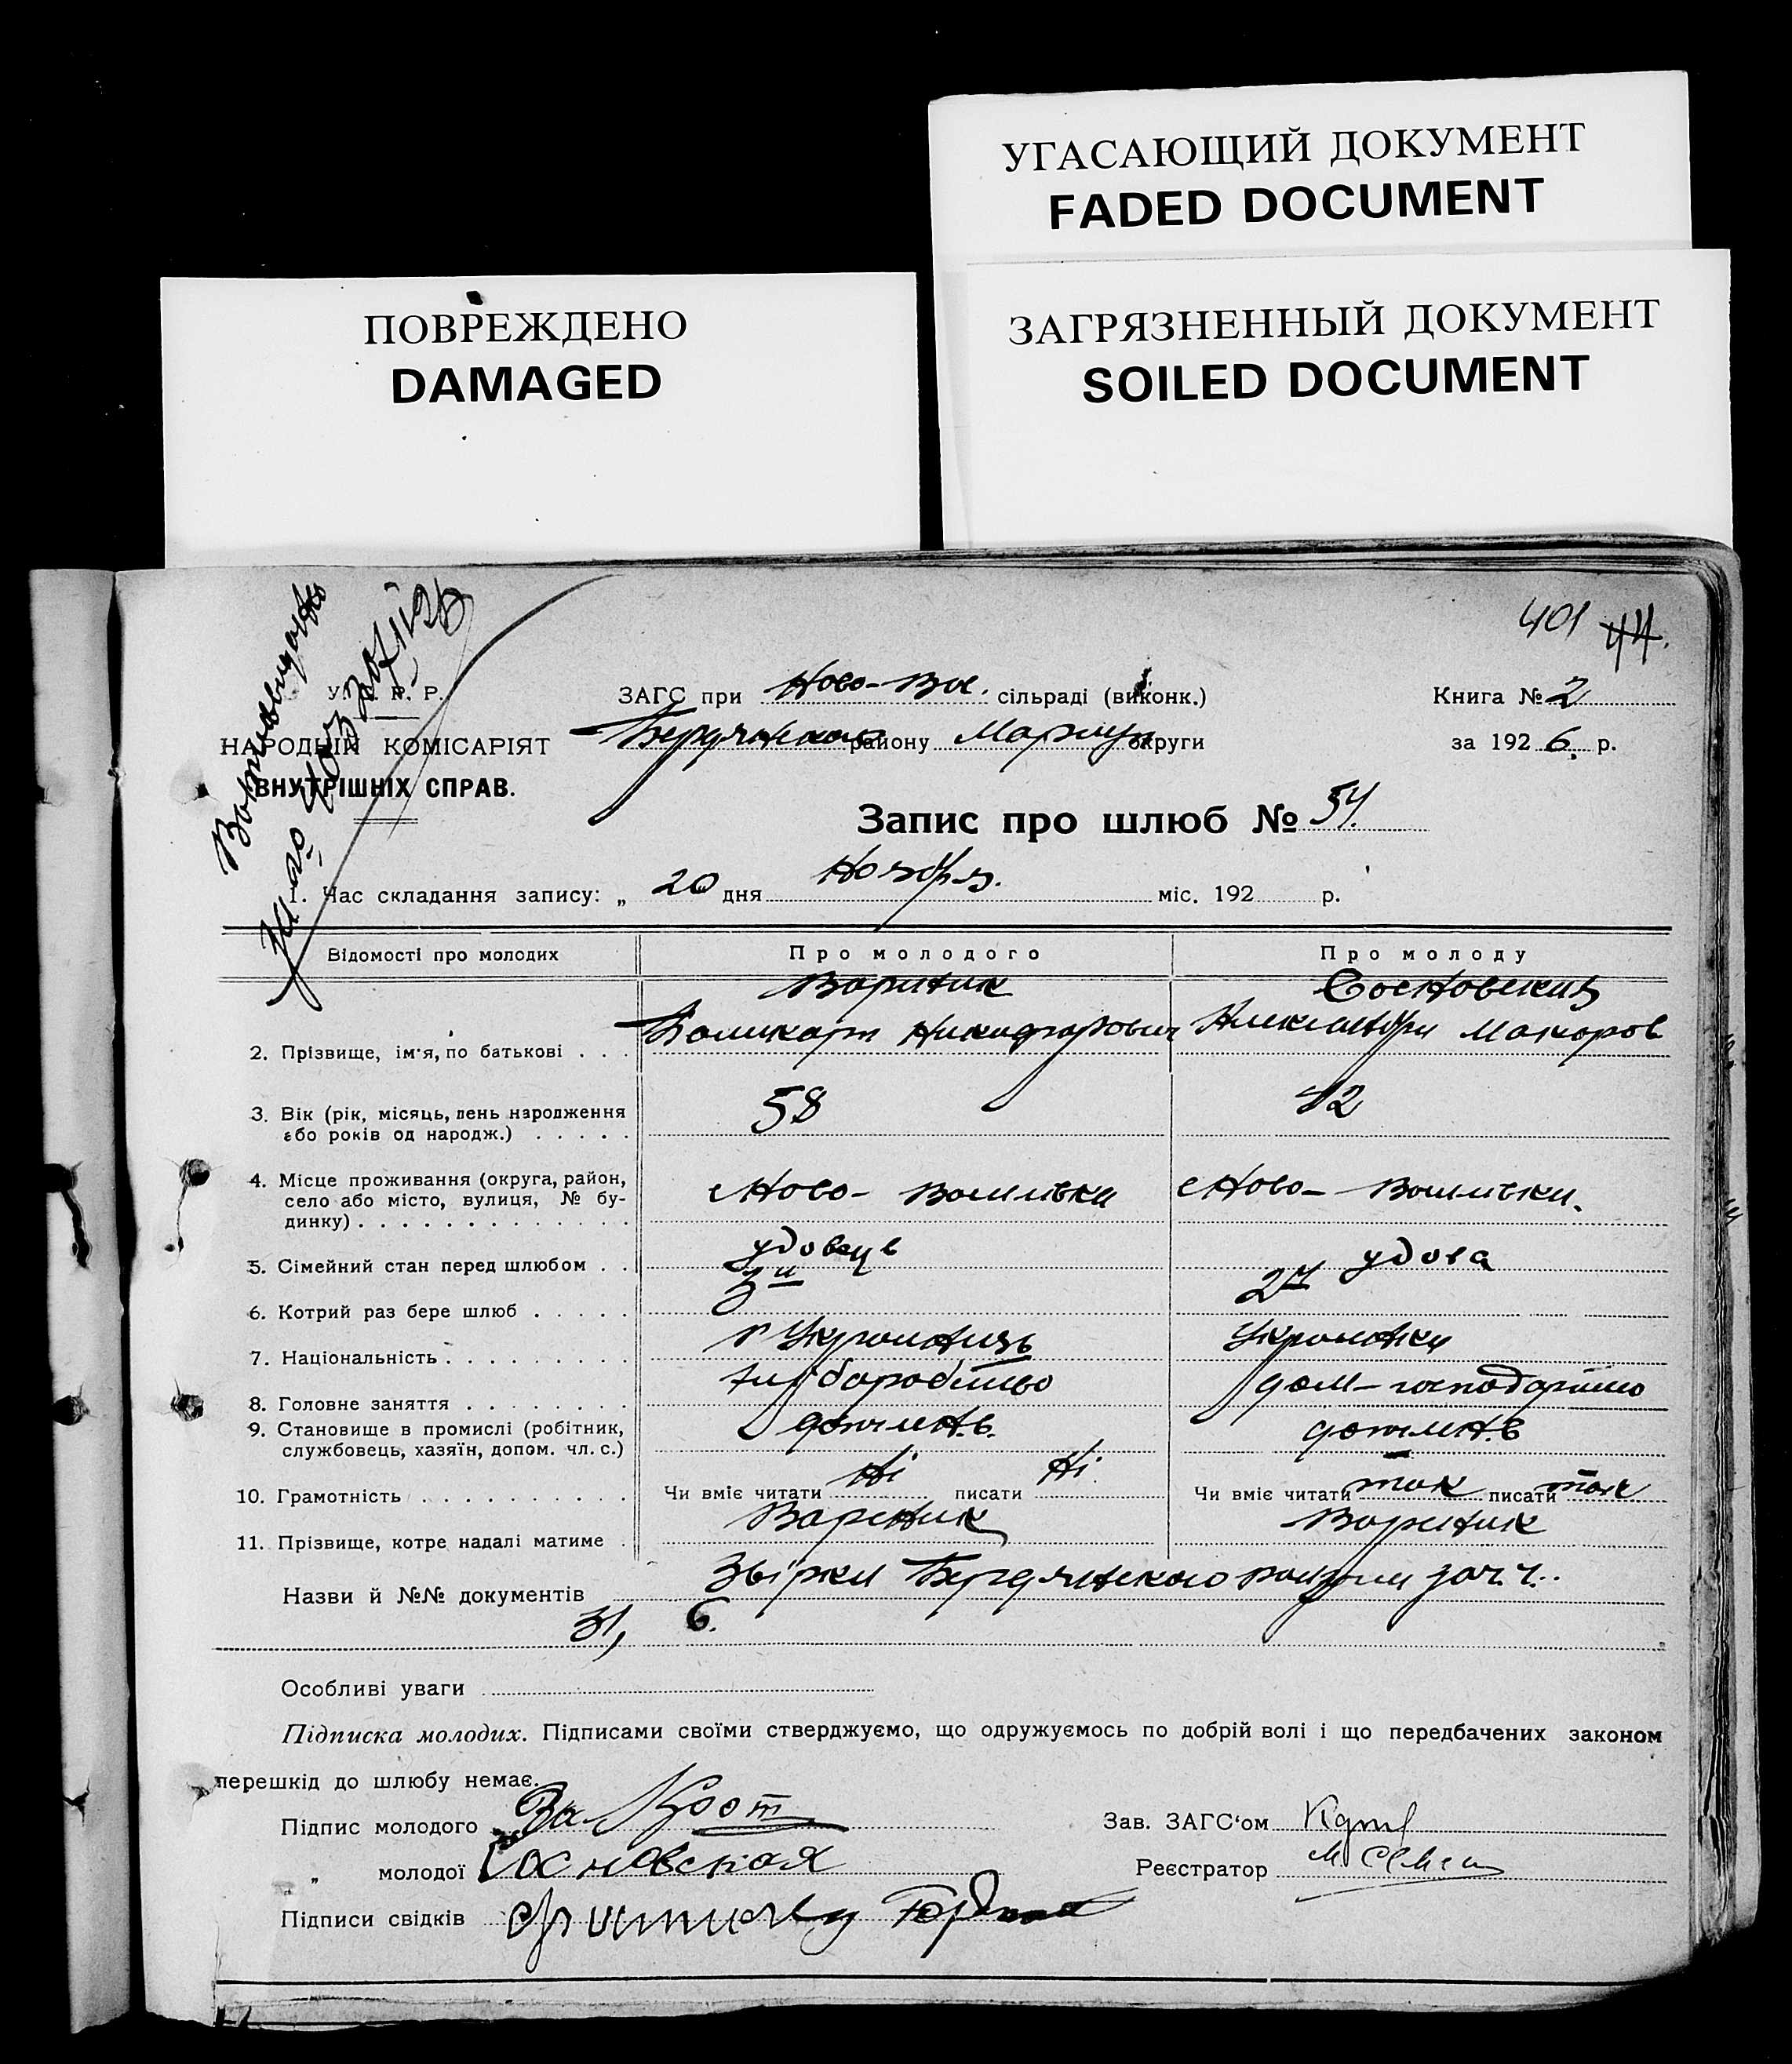 УГАСАЮЩИЙ ДОКУМЕНТ
FADED DOCUMENT
ПОВРЕЖДЕНО
DAMAGED
ЗАГРЯЗНЕННЫЙ ДОКУМЕНТ
SOILED DOCUMENT
401 44.
У. Р. Р.
ЗАГС при Ново-Вас. сільраді (виконк.)
Книга № 2
НАРОДНІЙ КОМІСАРІЯТ
Бердянського району Маріуп округи
за 1926. р.
ВНУТРІШНІХ СПРАВ.
Запис про шлюб № 54.
1. Час складання запису: „ 20 дня Ноября. міс. 192 р.
Відомості про молодих
Про молодого
Про молоду
Вареник
Сосновская
2. Прізвище, ім'я, по батькові . . .
Поликарп Никифорович
Александра Макаров
3. Вік (рік, місяць, день народження або років од народж.) . . . . .
58
42
4. Місце проживання (округа, район, село або місто, вулиця, № будинку) . . . . . . . . . . . . .
Ново-Василівка
Ново-Василівка.
5. Сімейний стан перед шлюбом . .
удовець
удова
6. Котрий раз бере шлюб . . . . .
3й
2й
7. Національність . . . . . . . . .
Українець
Українка
8. Головне заняття . . . . . . . .
хліборобство
дом-господарство
9. Становище в промислі (робітник, службовець, хазяїн, допом. чл. с.)
10. Грамотність . . . . . . . . . . .
Чи вміє читати Ні писати Ні
Чи вміє читати так писати так
11. Прізвище, котре надалі матиме .
Вареник
Вареник
Назви й №№ документів Звірки Бердянского за ч.
31, 6.
Особливі уваги
Підписка молодих. Підписами своїми стверджуємо, що одружуємось по добрій волі і що передбачених законом
перешкід до шлюбу немає.
Підпис молодого За Крот
Зав. ЗАГС'ом
„ молодої Сосновская
Реєстратор
Підписи свідків